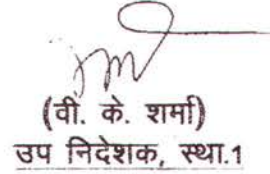 (वी. के. शर्मा)
उप निदेशक, स्था.1